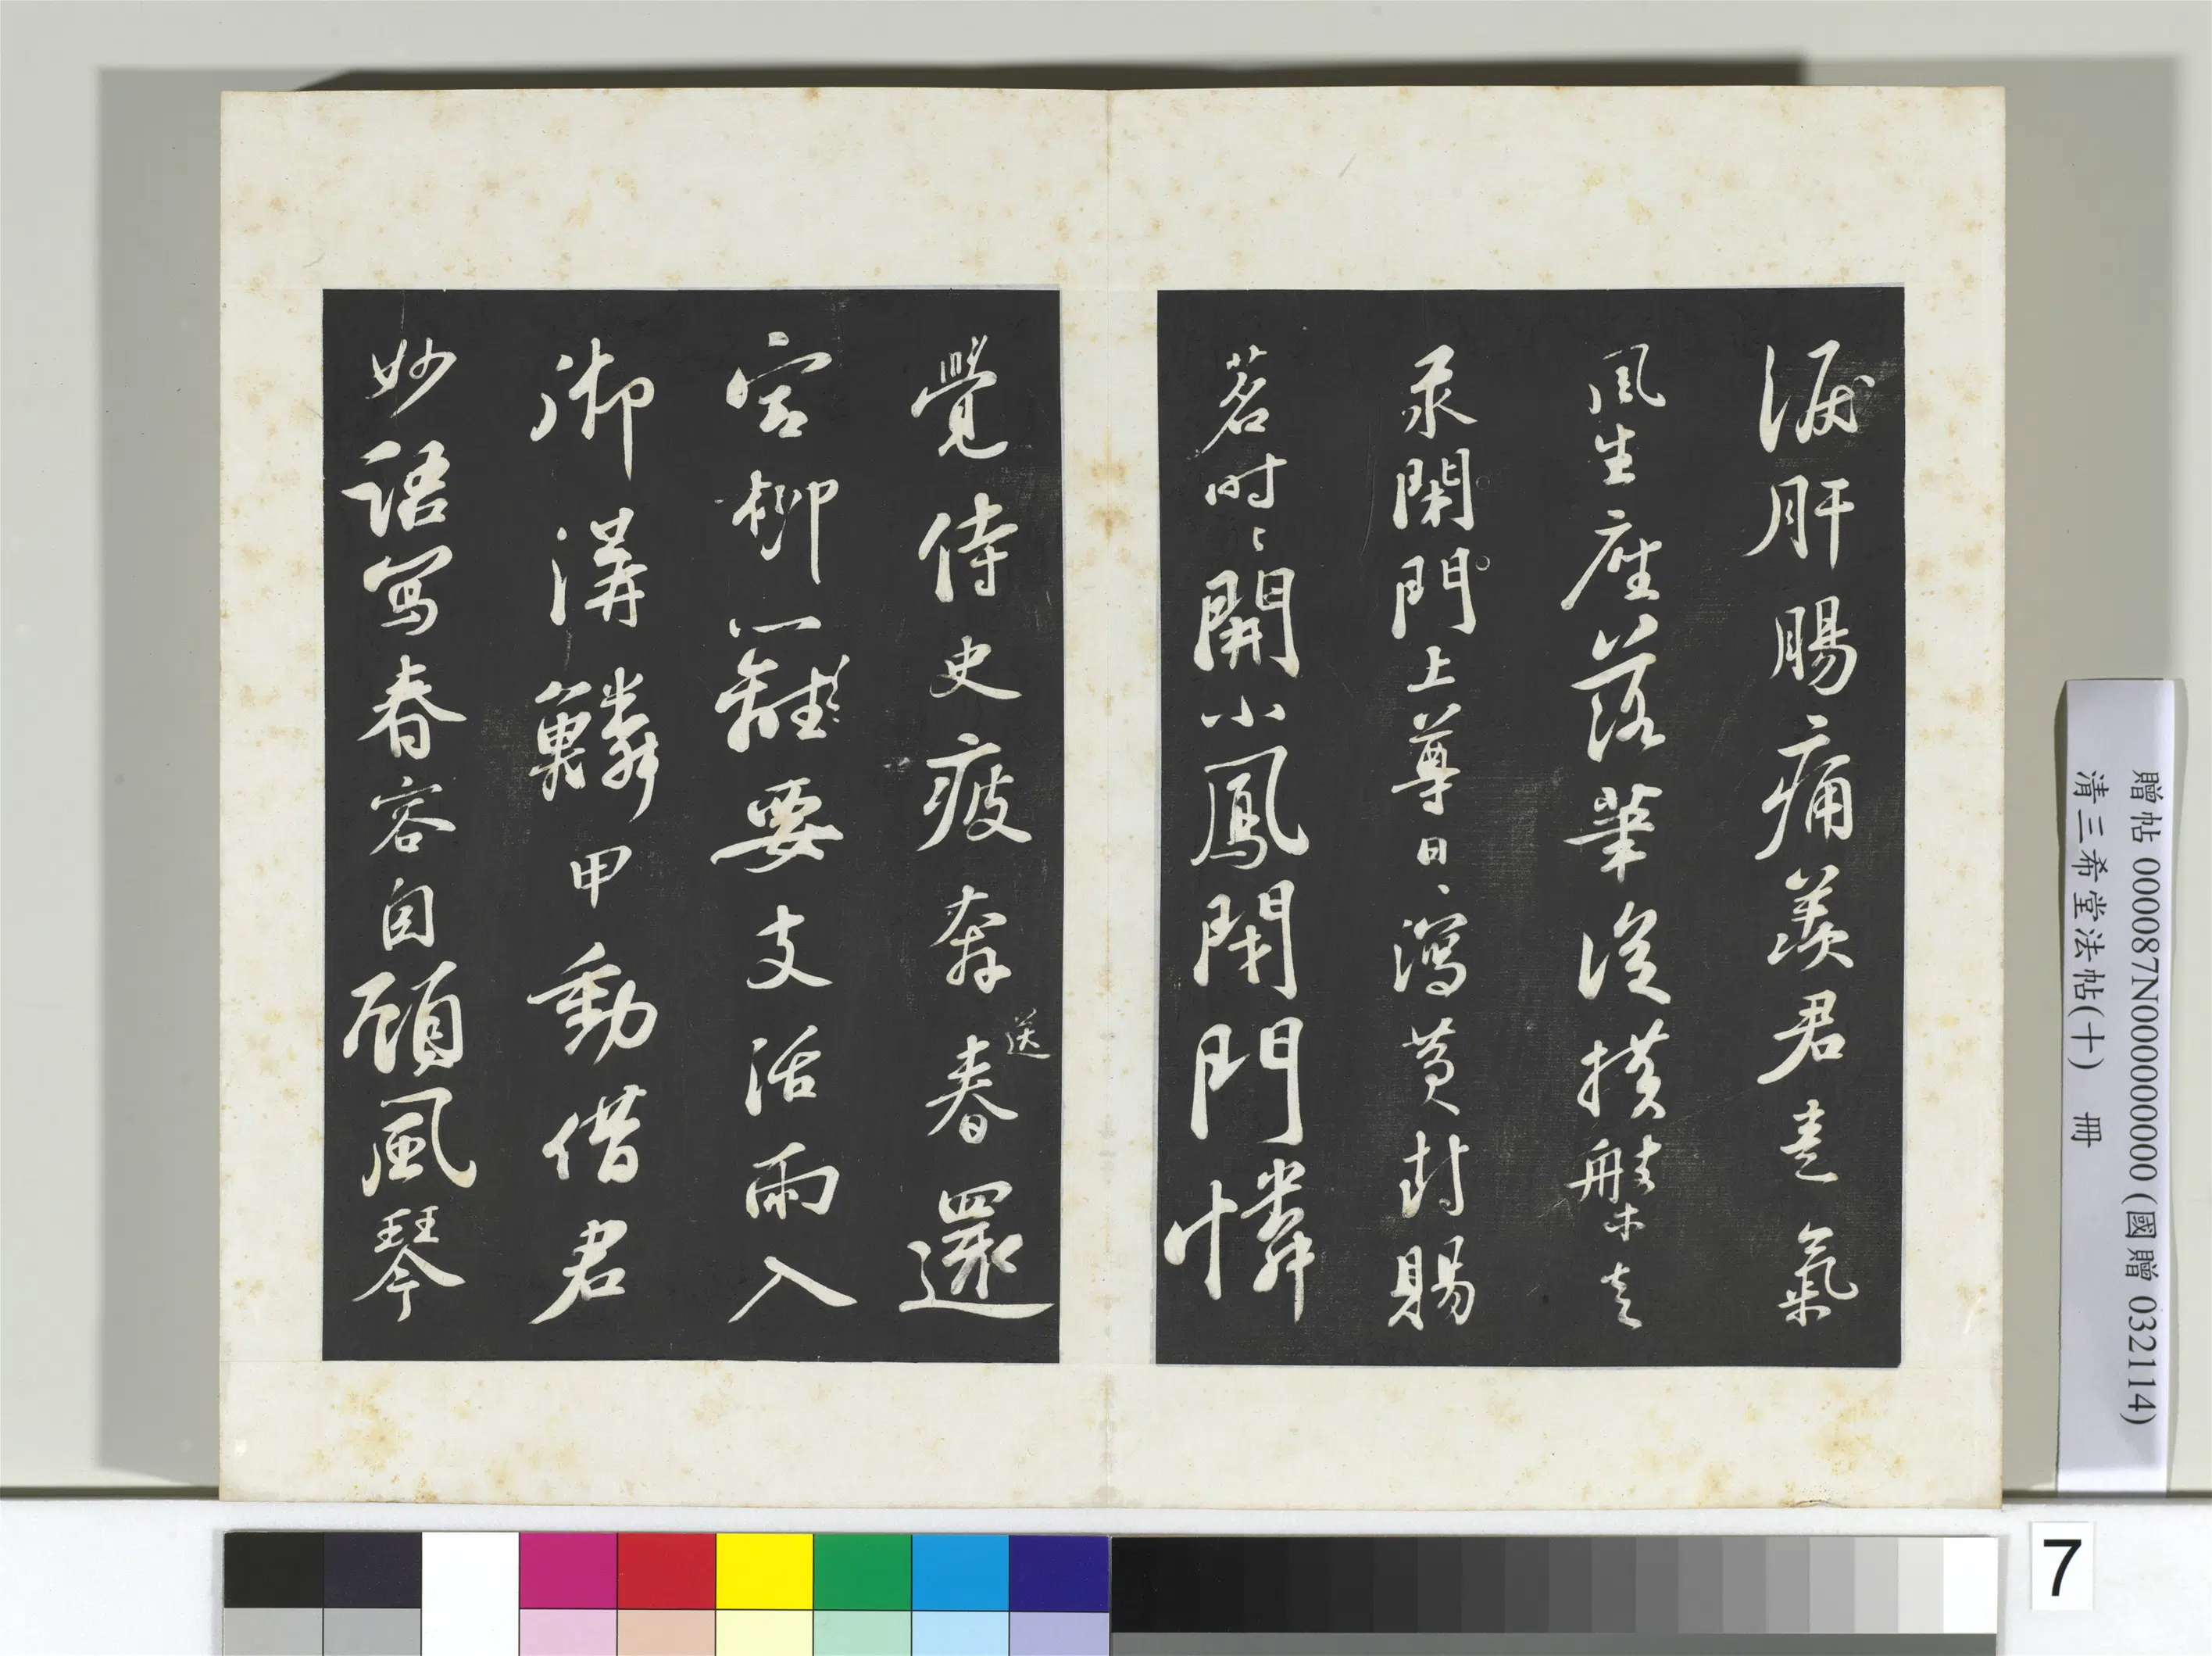 淚肝腸痛羨君意氣
風生座落筆從橫槃走
汞閉門上尊日、瀉黃封賜
茗時〻開小鳳閉門憐
覺侍史疲奔送春還
宮柳要支活雨入
御溝鱗甲動借君
妙語寫春容自顧風琴
贈帖 000087N000000000 (國贈 032114)
清三希堂法帖(十) 冊
7